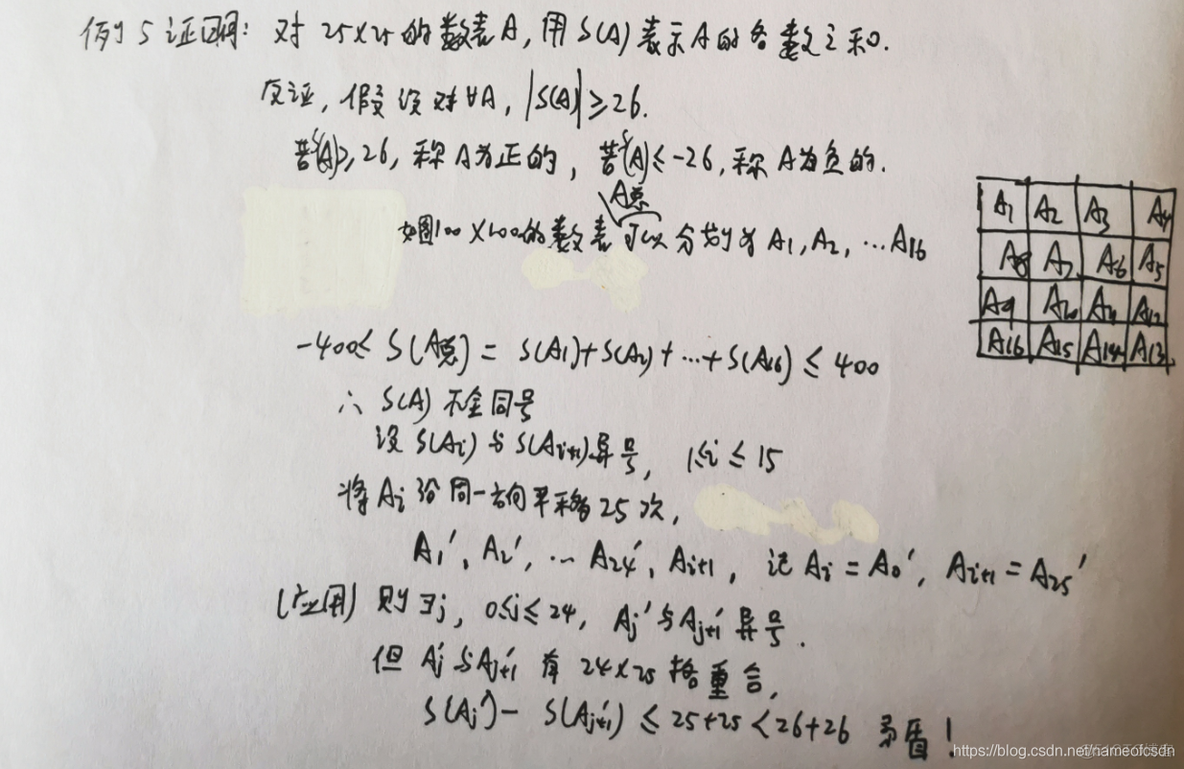 例5 证明: 对25×25的数表A, 用S(A)表示A的各数之和.
反证, 假设对∀A, |S(A)|≥26.
若S(A)≥26, 称A为正的, 若S(A)≤-26, 称A为负的.
A总
如图100×100的数表可以分划为A1, A2, …A16
A1 A2 A3 A4
A8 A7 A6 A5
A9 A10 A11 A12
A16 A15 A14 A13
-400≤ S(A总) = S(A1)+S(A2)+…+S(A16) ≤ 400
∴ S(A)不全同号
设S(Ai)与S(Ai+1)异号, 1≤i≤15
将Ai沿同一方向平移25次,
A1', A2', … A24', Ai+1, 记Ai=A0', Ai+1=A25'
(应用) 则∃j, 0≤j≤24, Aj'与Aj+1'异号.
但Aj'与Aj+1'有24×25格重合,
S(Aj')- S(Aj+1') ≤ 25+25 < 26+26 矛盾!
https://blog.csdn.net/nameofcsdn